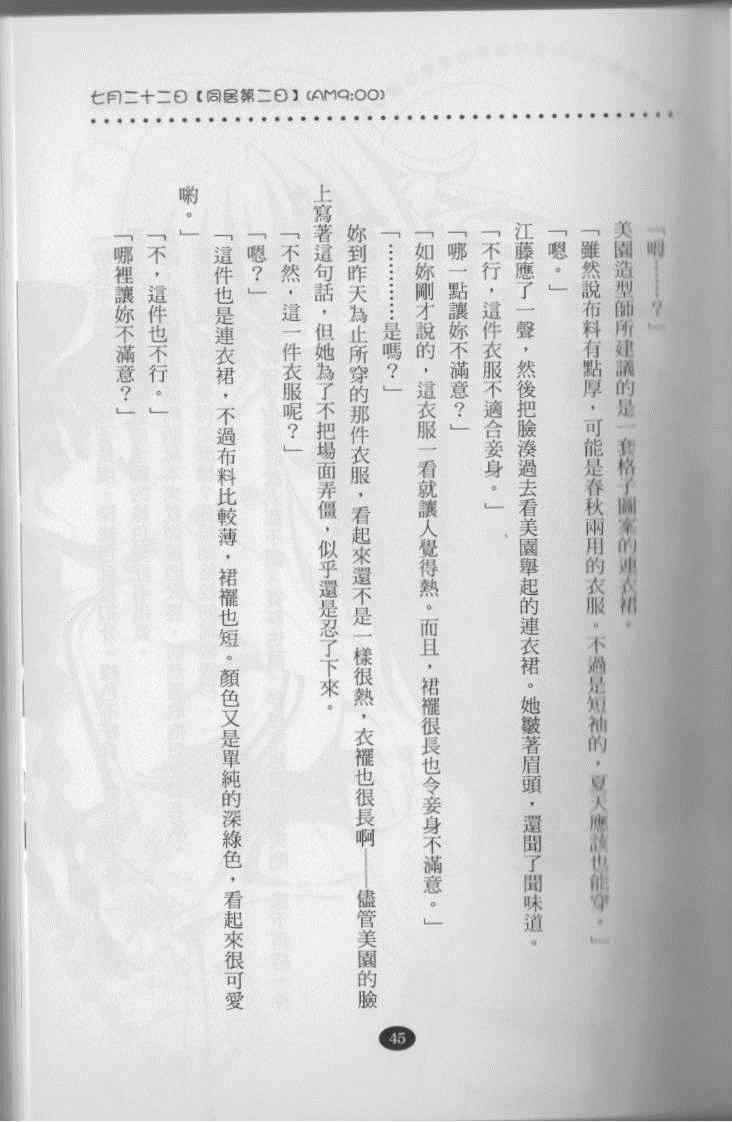 七月二十二日【同居第二日】(AM9:00)
「嗯……？」
美園造型師所建議的是一套格子圖案的連衣裙。
「雖然說布料有點厚，可能是春秋兩用的衣服。不過是短袖的，夏天應該也能穿。」
「嗯。」
江藤應了一聲，然後把臉湊過去看美園舉起的連衣裙。她皺著眉頭，還聞了聞味道。
「不行，這件衣服不適合妾身。」
「哪一點讓妳不滿意？」
「如妳剛才說的，這衣服一看就讓人覺得熱。而且，裙襬很長也令妾身不滿意。」
「…………是嗎？」
妳到昨天為止所穿的那件衣服，看起來還不是一樣很熱，衣襬也很長啊——儘管美園的臉
上寫著這句話，但她為了不把場面弄僵，似乎還是忍了下來。
「不然，這一件衣服呢？」
「嗯？」
「這件也是連衣裙，不過布料比較薄，裙襬也短。顏色又是單純的深綠色，看起來很可愛
喲。」
「不，這件也不行。」
「哪裡讓妳不滿意？」
45